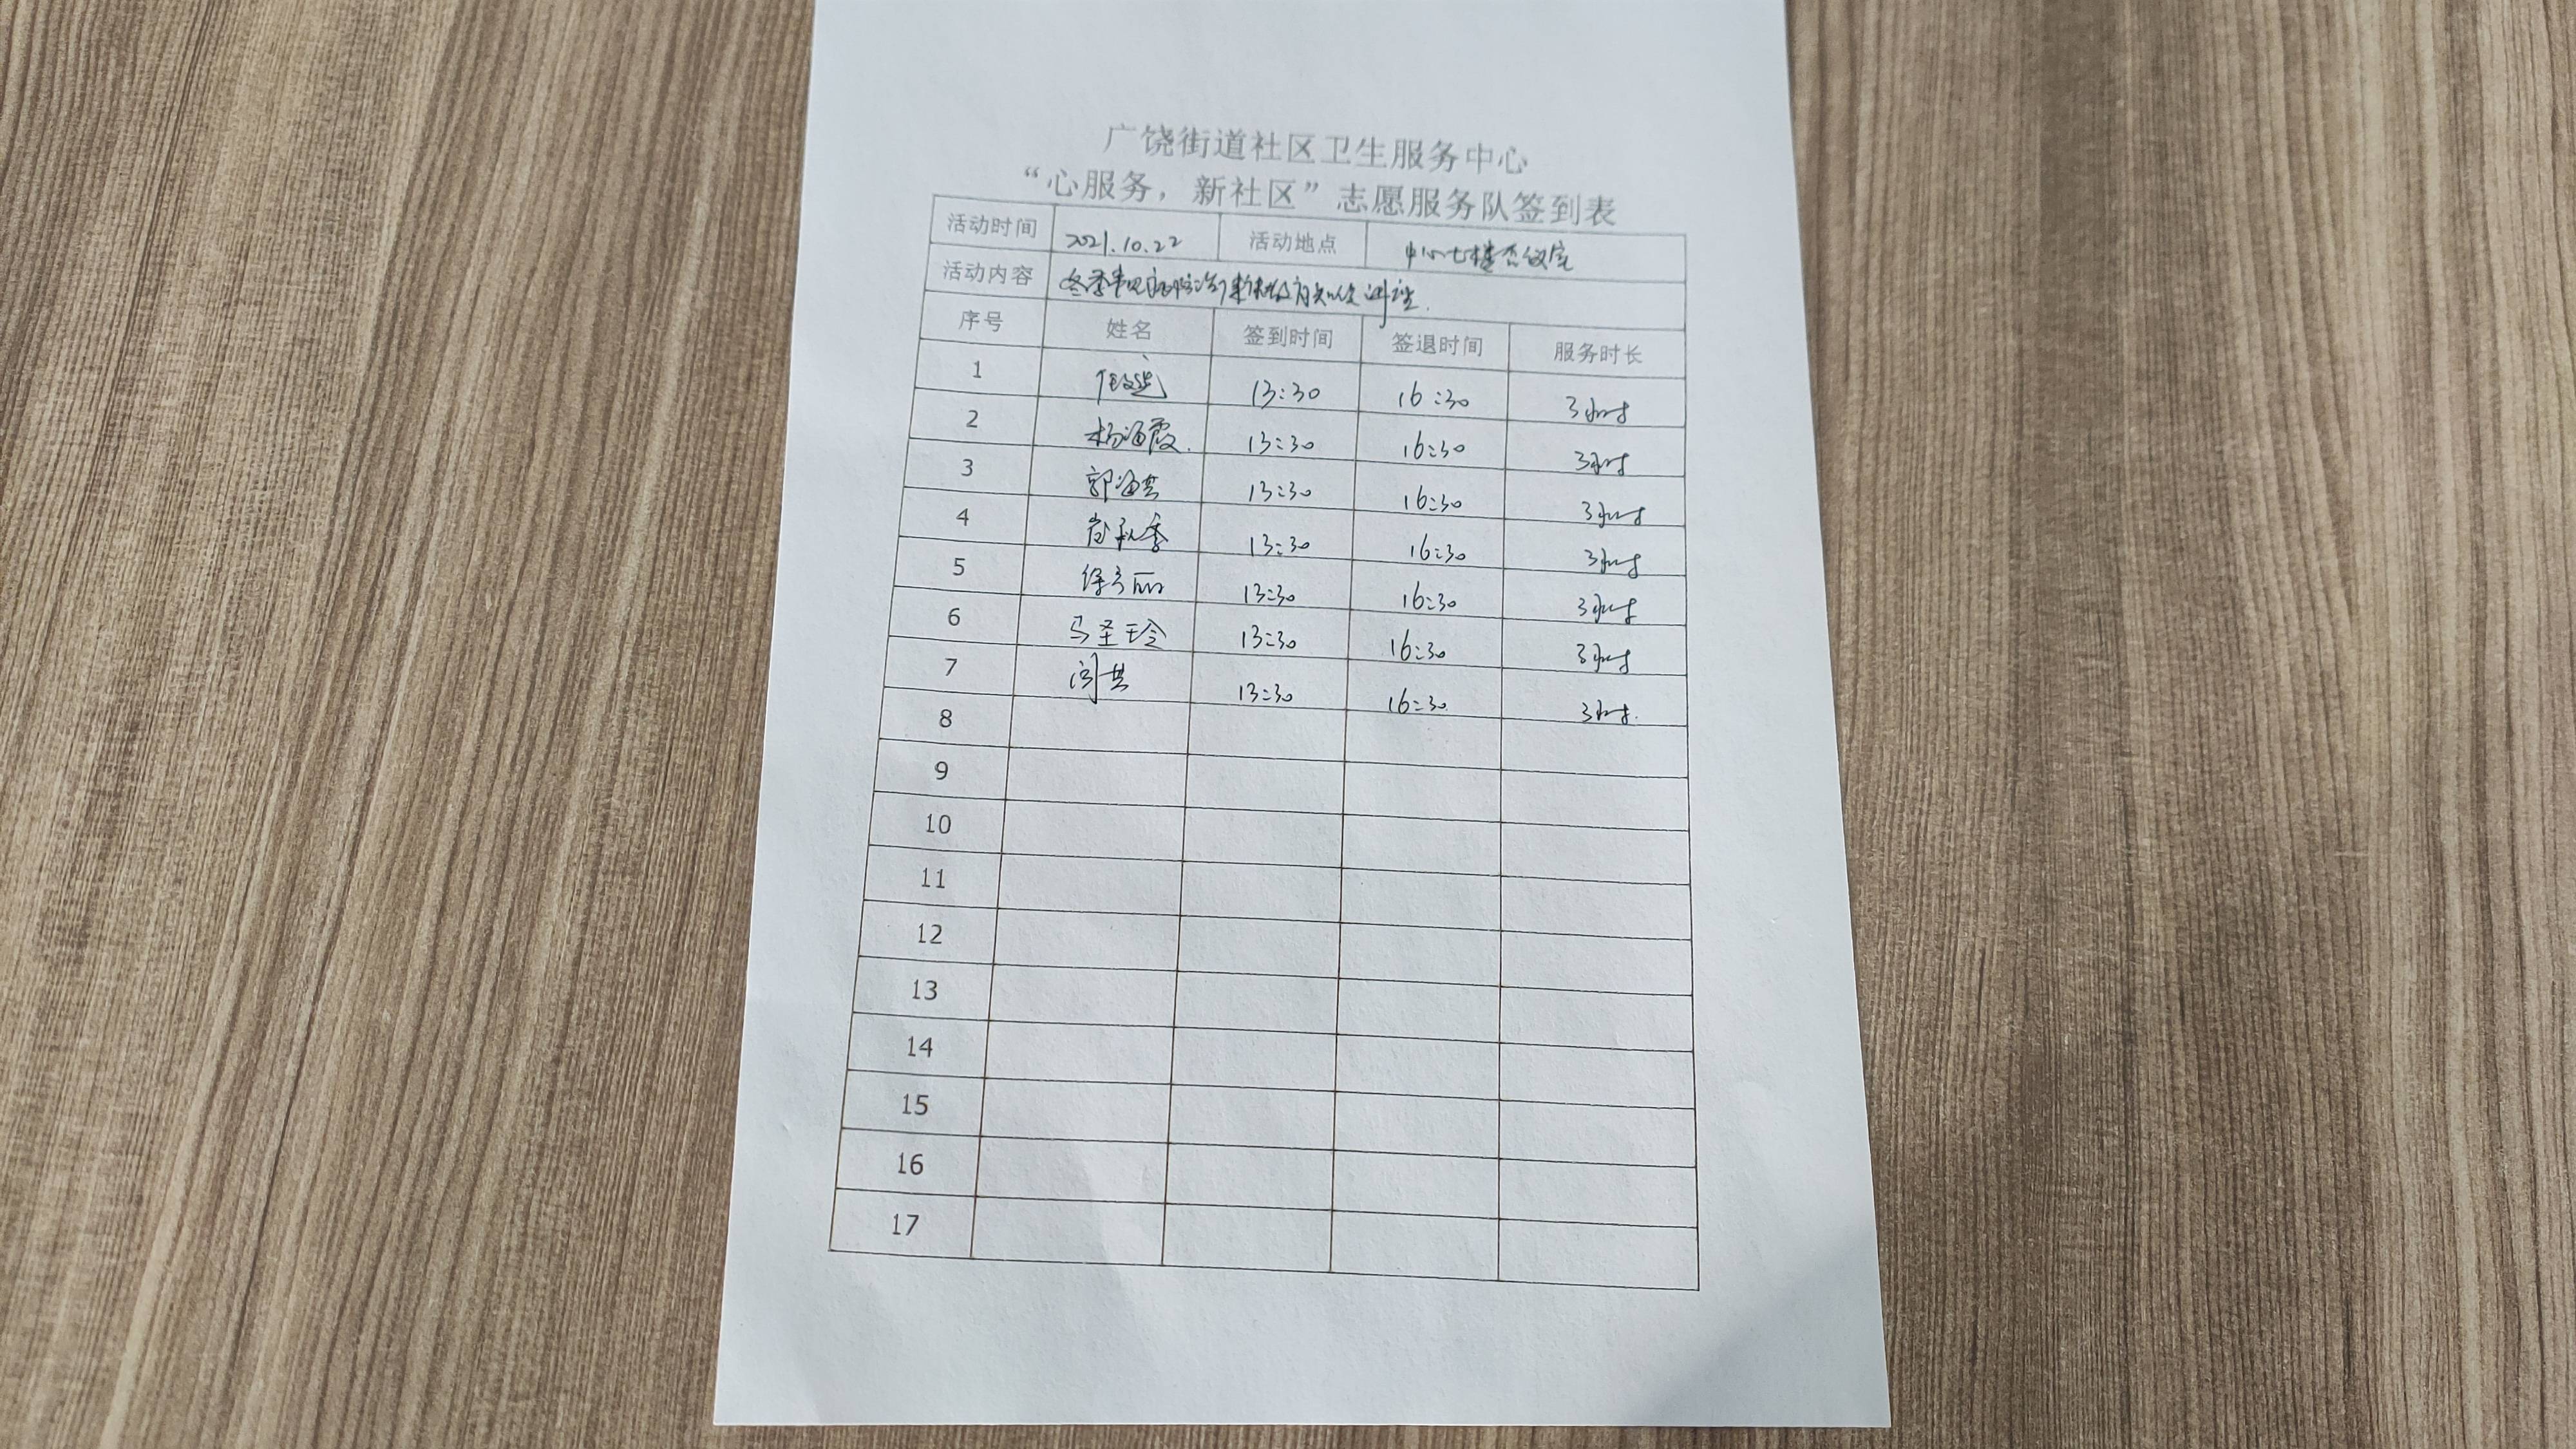 广饶街道社区卫生服务中心
“心服务，新社区”志愿服务队签到表
活动时间 2021.10.22 活动地点 中心七楼会议室
活动内容 冬季常见病防治 知识讲座.
序号 姓名 签到时间 签退时间 服务时长
1 13:30 16:30 3小时
2 杨海霞. 13:30 16:30 3小时
3 郭海芸 13:30 16:30 3小时
4 13:30 16:30 3小时
5 13:30 16:30 3小时
6 马圣玲 13:30 16:30 3小时
7 13:30 16:30. 3小时.
8
9
10
11
12
13
14
15
16
17